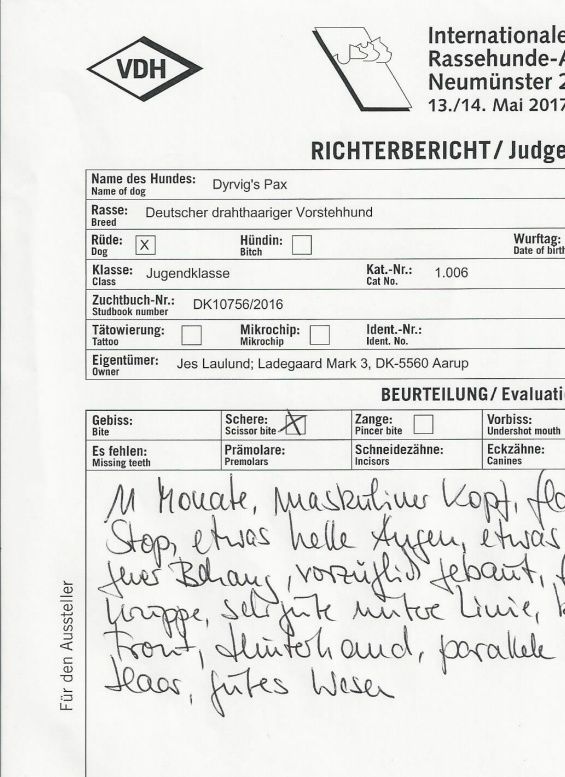 VDH
Internationale
Rassehunde-A
Neumünster 2
13./14. Mai 2017
RICHTERBERICHT / Judge
Name des Hundes: Dyrvig's Pax
Name of dog
Rasse: Deutscher drahthaariger Vorstehhund
Breed
Rüde: X Hündin: Wurftag:
Dog Bitch Date of birth
Klasse: Jugendklasse Kat.-Nr.: 1.006
Class Cat No.
Zuchtbuch-Nr.: DK10756/2016
Studbook number
Tätowierung: Mikrochip: Ident.-Nr.:
Tattoo Mikrochip Ident. No.
Eigentümer: Jes Laulund; Ladegaard Mark 3, DK-5560 Aarup
Owner
BEURTEILUNG / Evaluati
Gebiss: Schere: X Zange: Vorbiss:
Bite Scissor bite Pincer bite Undershot mouth
Es fehlen: Prämolare: Schneidezähne: Eckzähne:
Missing teeth Premolars Incisors Canines
11 Monate, maskuliner Kopf, fla
Stop, etwas helle Augen, etwas
Behang, vorzüglich gebaut,
Kruppe, sehr gute untere Linie,
Front, Hinterhand, parallele
Haar, gutes Wesen
Für den Aussteller